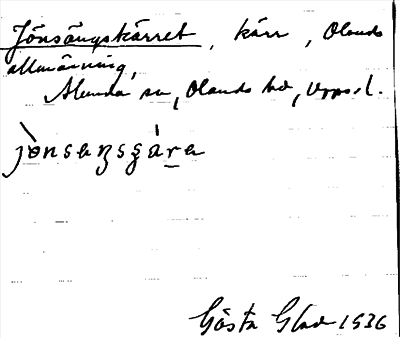 Jönsängskärret, kärr, Olands
allmänning,
Alunda sn, Olands hd, Upps. l.
jònsaŋsçára
Gösta Glad 1936